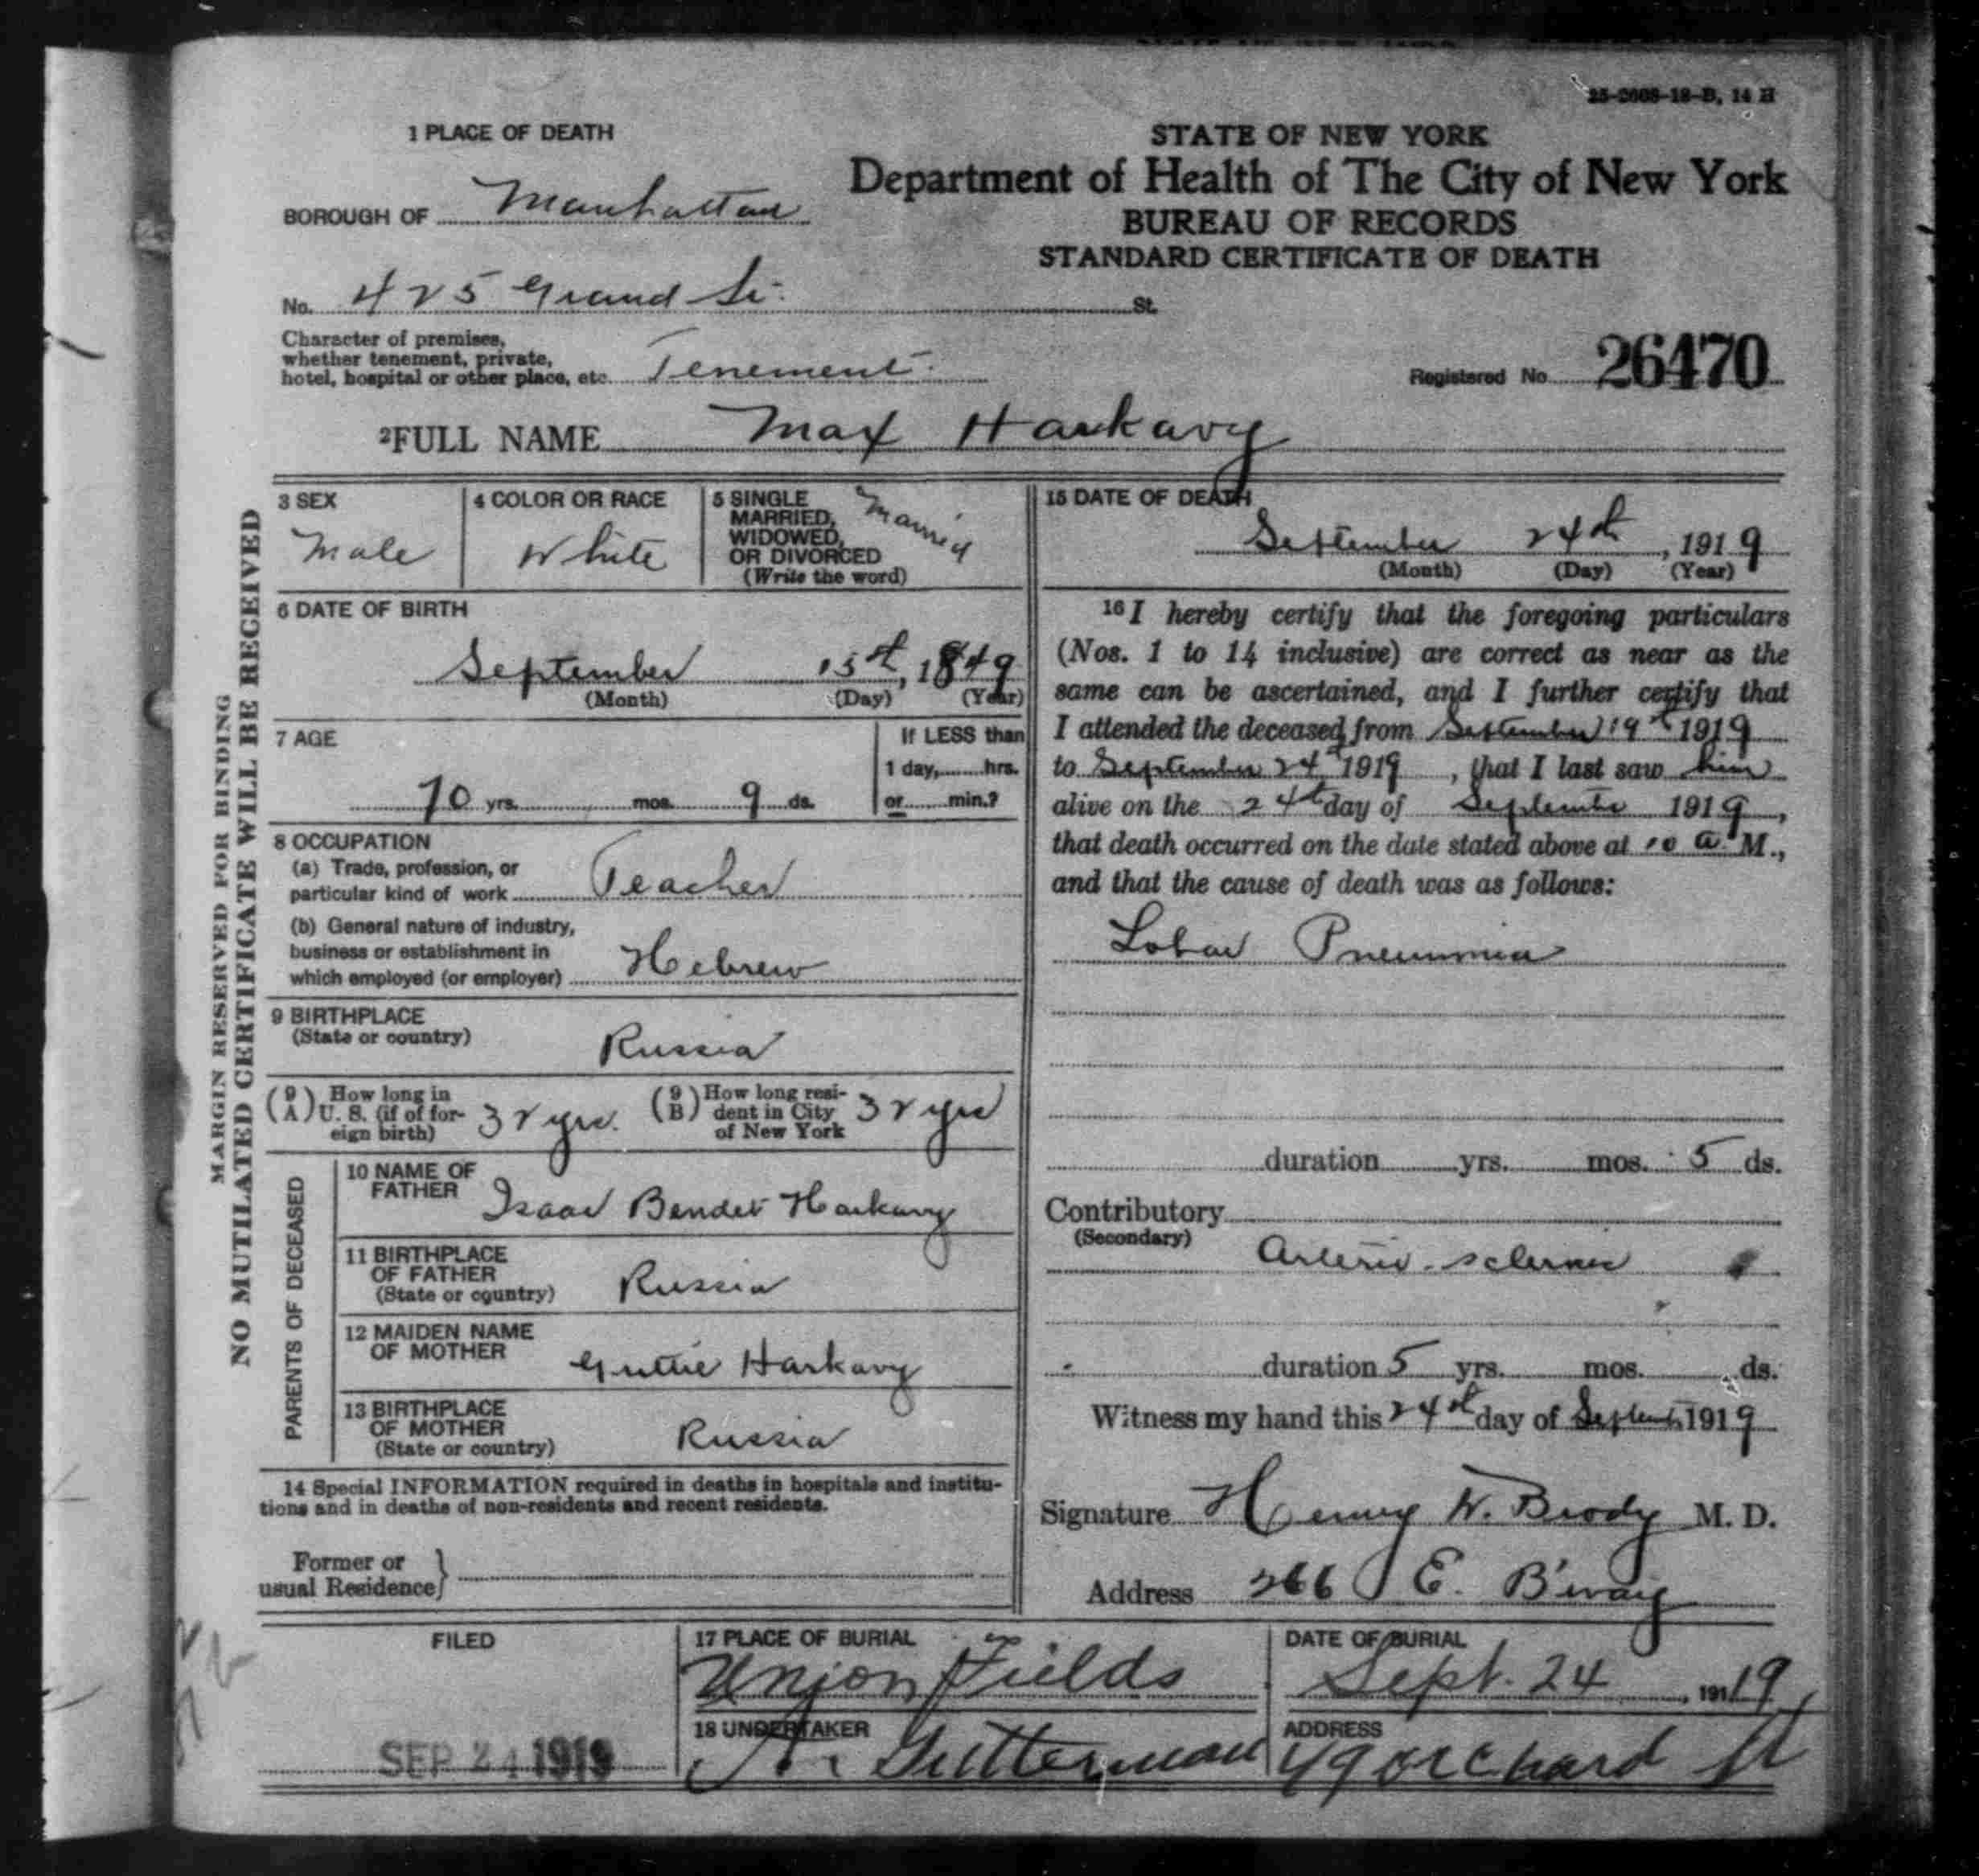 25-2608-18-B, 14 H
1 PLACE OF DEATH
BOROUGH OF Manhattan
No. 425 Grand St. St.
Character of premises,
whether tenement, private,
hotel, hospital or other place, etc. Tenement.
STATE OF NEW YORK
Department of Health of The City of New York
BUREAU OF RECORDS
STANDARD CERTIFICATE OF DEATH
Registered No. 26470
2 FULL NAME Max Harkavy
MARGIN RESERVED FOR BINDING
NO MUTILATED CERTIFICATE WILL BE RECEIVED
3 SEX
Male
4 COLOR OR RACE
White
5 SINGLE
MARRIED,
WIDOWED,
OR DIVORCED
(Write the word)
Married
6 DATE OF BIRTH
September 15th, 1849
(Month) (Day) (Year)
7 AGE
70 yrs. mos. 9 ds.
If LESS than
1 day, hrs.
or min.?
8 OCCUPATION
(a) Trade, profession, or
particular kind of work Teacher
(b) General nature of industry,
business or establishment in
which employed (or employer) Hebrew
9 BIRTHPLACE
(State or country)
Russia
(9 A) How long in
U. S. (if of for-
eign birth)
32 yrs.
(9 B) How long resi-
dent in City
of New York
32 yrs
PARENTS OF DECEASED
10 NAME OF
FATHER
Isaac Bendet Harkavy
11 BIRTHPLACE
OF FATHER
(State or country)
Russia
12 MAIDEN NAME
OF MOTHER
Guttie Harkavy
13 BIRTHPLACE
OF MOTHER
(State or country)
Russia
14 Special INFORMATION required in deaths in hospitals and institu-
tions and in deaths of non-residents and recent residents.
Former or
usual Residence
15 DATE OF DEATH
September 24th, 1919
(Month) (Day) (Year)
16 I hereby certify that the foregoing particulars
(Nos. 1 to 14 inclusive) are correct as near as the
same can be ascertained, and I further certify that
I attended the deceased from September 19th 1919
to September 24th 1919, that I last saw him
alive on the 24th day of September 1919,
that death occurred on the date stated above at 10 a. M.,
and that the cause of death was as follows:
Lobar Pneumonia
duration yrs. mos. 5 ds.
Contributory
(Secondary)
Arterio-sclerosis
duration 5 yrs. mos. ds.
Witness my hand this 24th day of Septemb 1919
Signature Henry W. Brody M. D.
Address 266 E. B'way
FILED
SEP 24 1919
17 PLACE OF BURIAL
Union Fields
DATE OF BURIAL
Sept. 24, 19119
18 UNDERTAKER
Gutterman
ADDRESS
49 orchard st